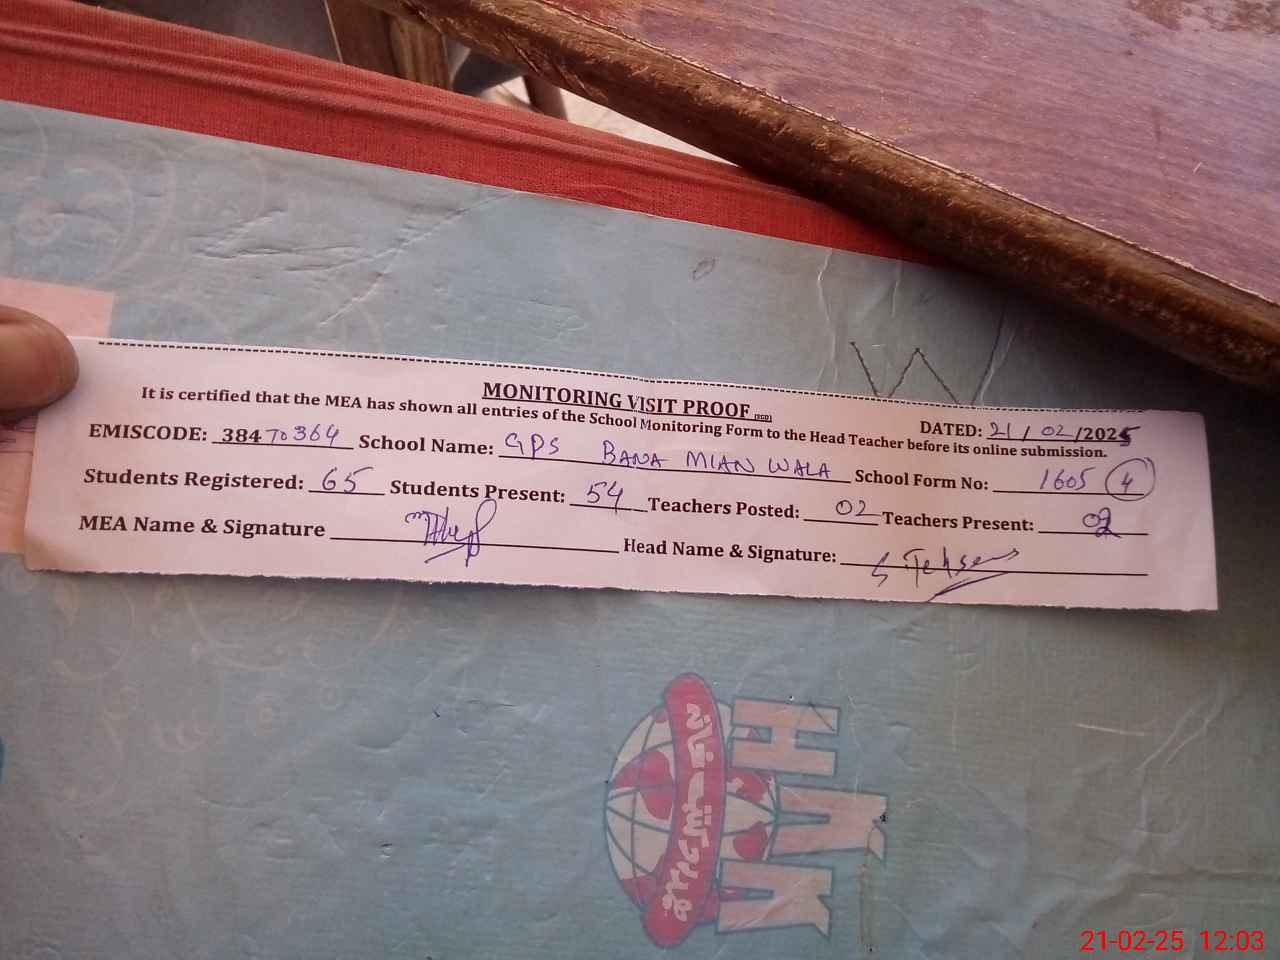 MONITORING VISIT PROOF (SGD)
It is certified that the MEA has shown all entries of the School Monitoring Form to the Head Teacher before its online submission.
DATED: 21/02/2025
EMISCODE: 384 70 364 School Name: GPS BANA MIAN WALA School Form No: 1605 (4)
Students Registered: 65 Students Present: 54 Teachers Posted: 02 Teachers Present: 02
MEA Name & Signature Head Name & Signature:
W
HMW
21-02-25 12:03